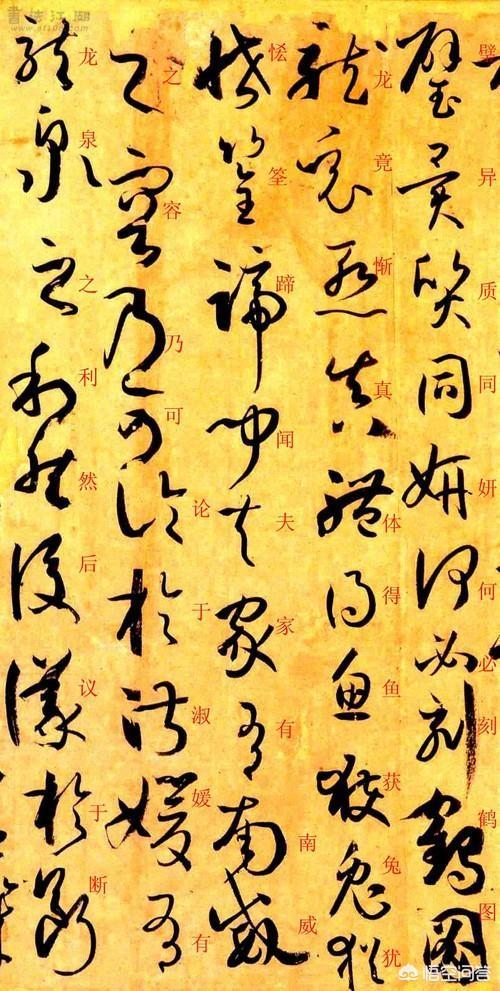 璧异质同妍何必刻鹤图
龙竟惭真体得鱼获兔犹
恡筌蹄闻夫家有南威
之容乃可论于淑媛有
龙泉之利然后议于断
書法江湖
悟空问答